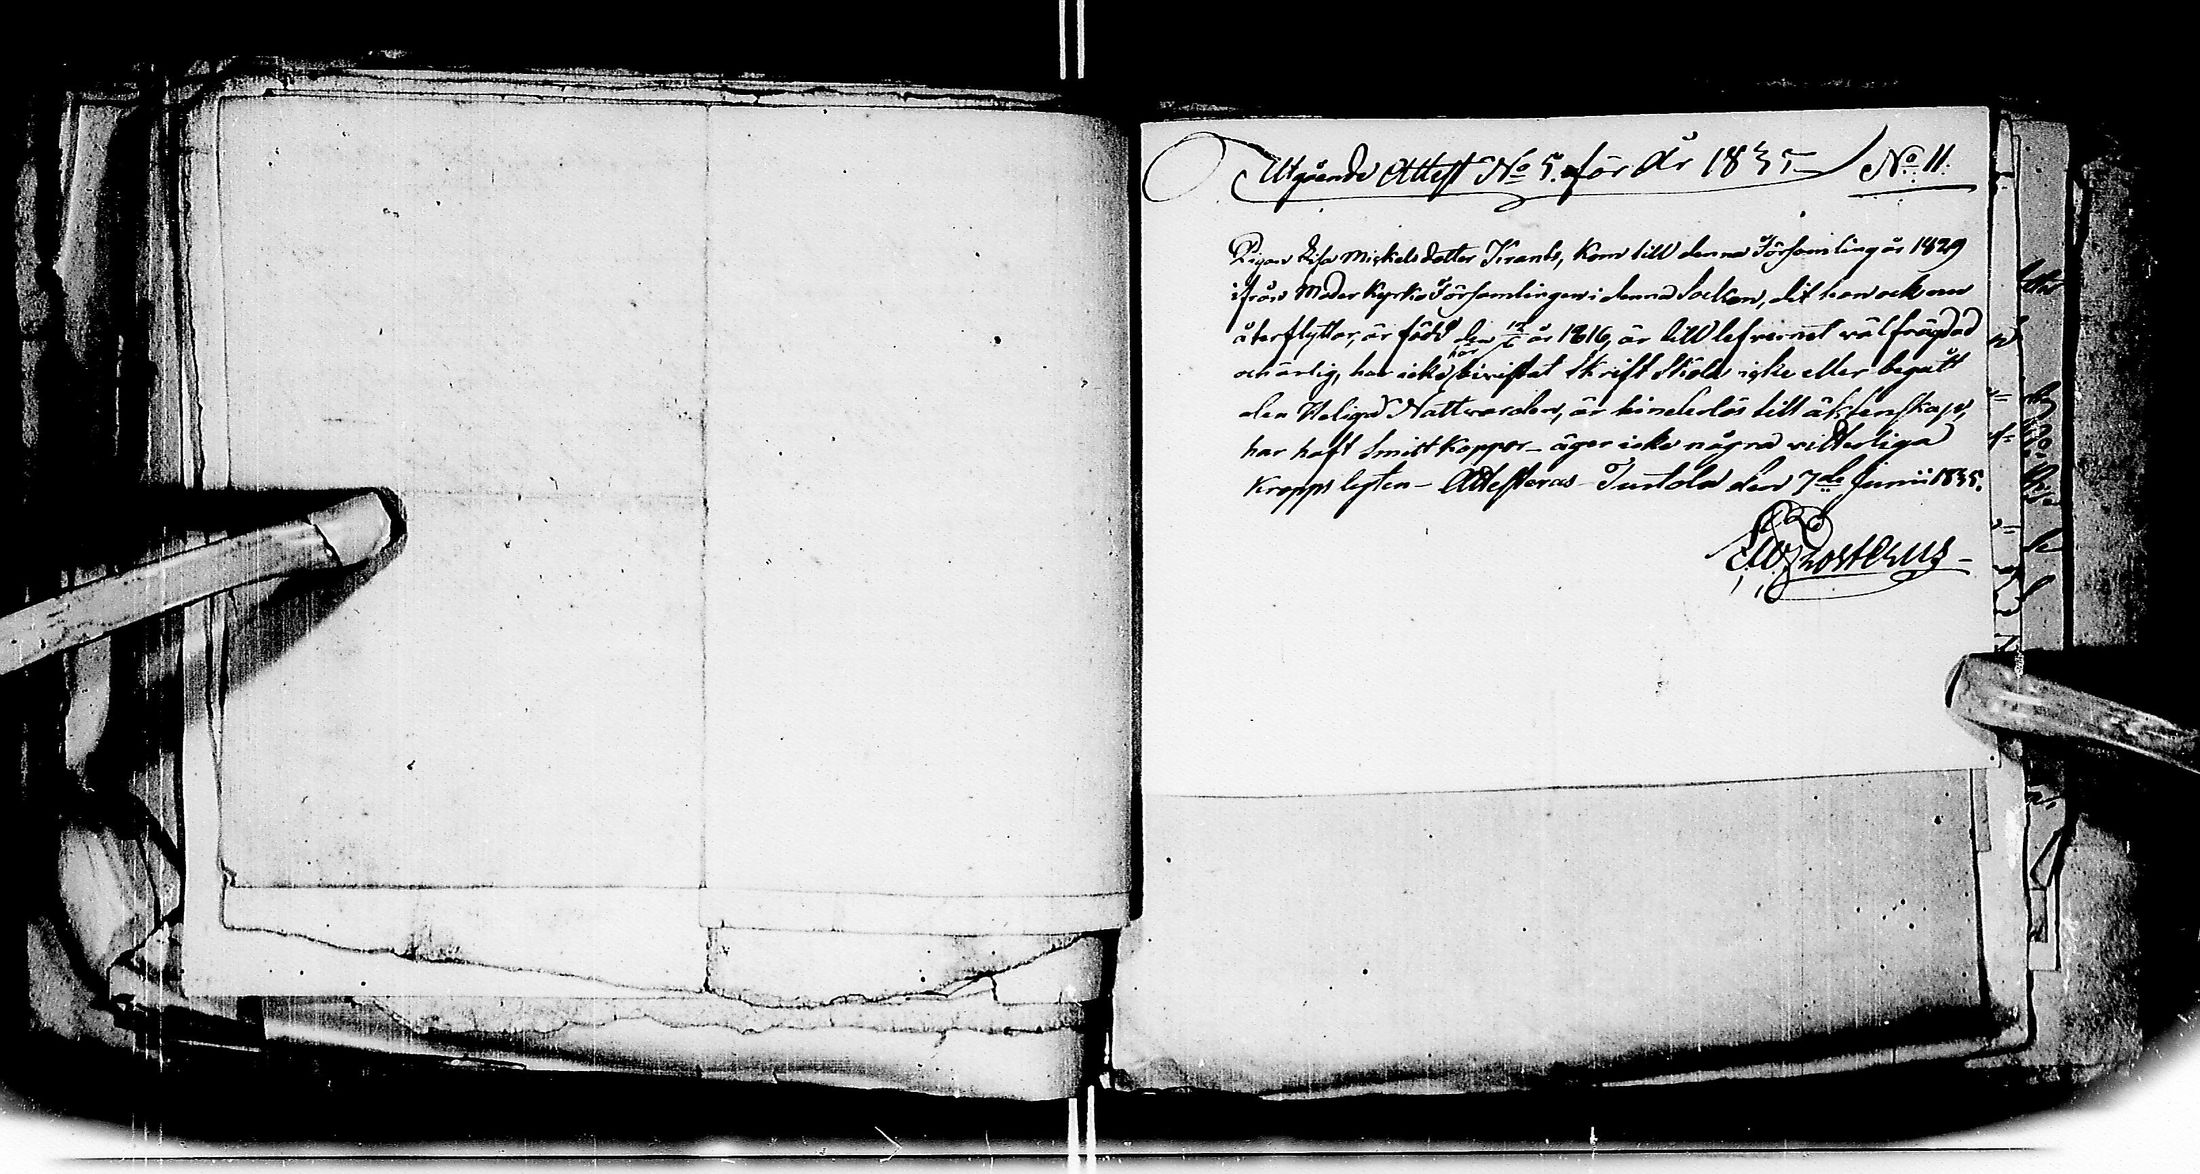 Utgående Attest No 5. för år 1835 No 11.
Pigan Lisa Mickelsdotter Krants, kom till denna Församling år 1829
ifrån Moder Kyrko Församlingen i denna Socken, dit hon ock nu
återflyttar, är född den 12/6 år 1816, är till lefvernet välfrägdad
och ärlig, har icke här bivistat Skrift Skola icke eller begått
den Heliga Nattvarden, är hinderlös till äktenskap,
har haft Smittkoppor – äger icke några vitterliga
Kropps lyten – Attesteras – Tuntola den 7de Junii 1835.